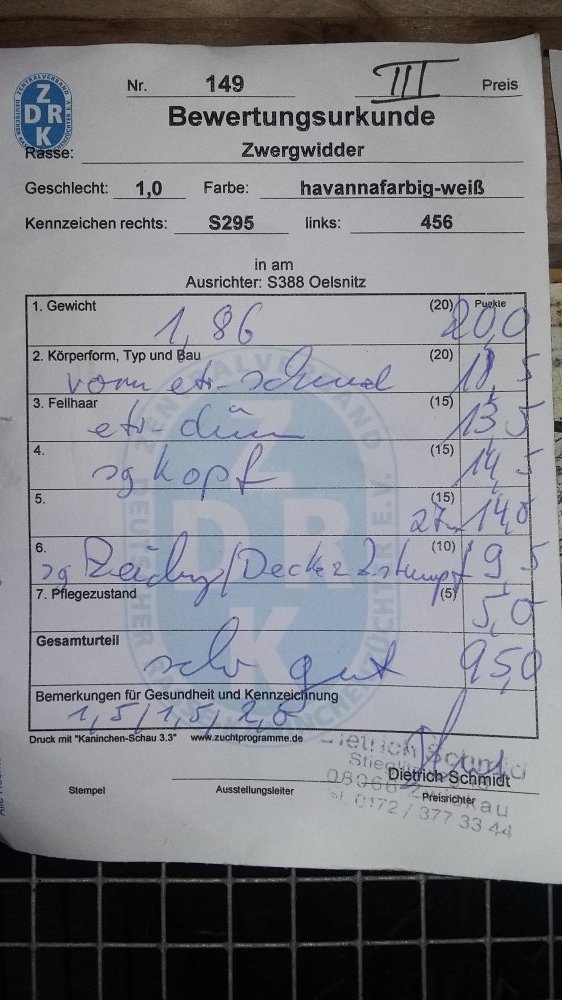 Nr. 149 III Preis
Bewertungsurkunde
ZENTRALVERBAND
ZDRK
Rasse: Zwergwidder
Geschlecht: 1,0 Farbe: havannafarbig-weiß
Kennzeichen rechts: S295 links: 456
in am
Ausrichter: S388 Oelsnitz
1. Gewicht (20) Punkte
1,86 20,0
2. Körperform, Typ und Bau (20)
vorn etw. schmal 18,5
3. Fellhaar (15)
etw. dünn 13,5
4. (15)
sg Kopf 14,5
5. (15)
27 14,0
6. (10)
sg / Decke 9,5
7. Pflegezustand (5)
5,0
Gesamturteil
sehr gut 95,0
Bemerkungen für Gesundheit und Kennzeichnung
1,5/1,5/2,0
Druck mit "Kaninchen-Schau 3.3" www.zuchtprogramme.de
Dietrich Schmidt
Dietrich Schmidt
Stempel Ausstellungsleiter Preisrichter
0172 / 377 33 44